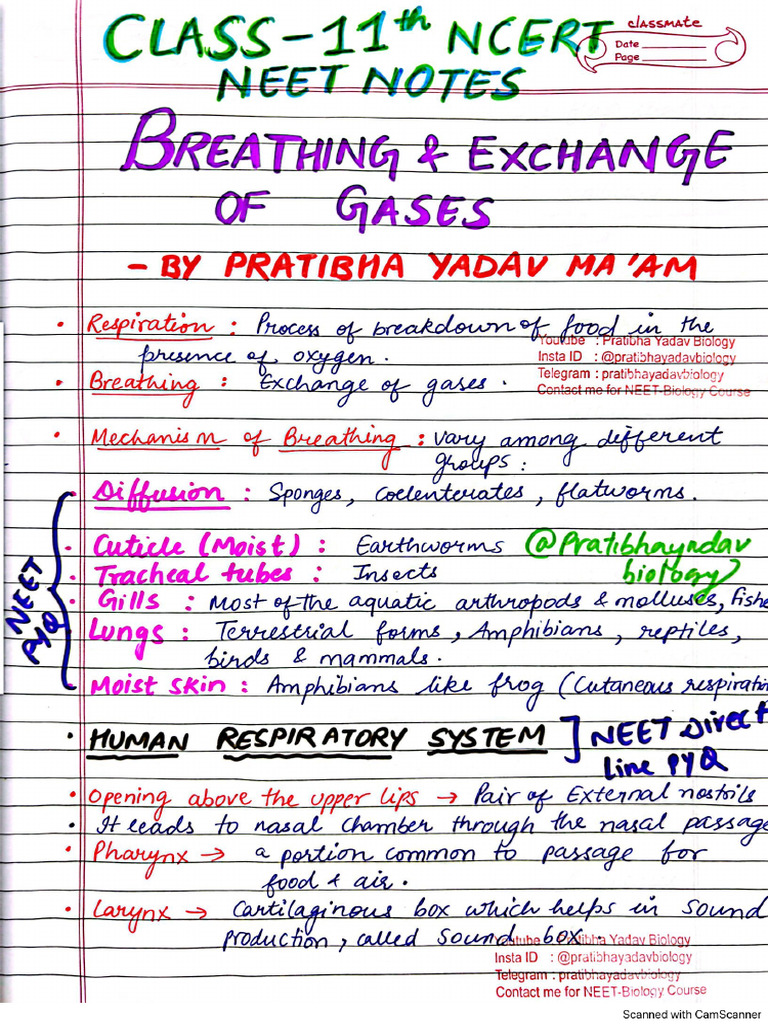 CLASS-11th NCERT
classmate
Date
Page
NEET NOTES
BREATHING & EXCHANGE
OF GASES
- BY PRATIBHA YADAV MA'AM
• Respiration : Process of breakdown of food in the
presence of oxygen.
Youtube : Pratibha Yadav Biology
Insta ID : @pratibhayadavbiology
Telegram : pratibhayadavbiology
Contact me for NEET-Biology Course
• Breathing : Exchange of gases.
• Mechanism of Breathing : vary among different
groups :
NEET PYQ
Diffusion : Sponges, coelenterates, flatworms.
• Cuticle (Moist) : Earthworms
@Pratibhayadav
biology
• Tracheal tubes : Insects
• Gills : Most of the aquatic arthropods & molluscs, fishe
Lungs : Terrestrial forms, Amphibians, reptiles,
birds & mammals.
Moist skin : Amphibians like frog (Cutaneous respiratio
• HUMAN RESPIRATORY SYSTEM ] NEET Direct
Line PYQ
• Opening above the upper lips → Pair of External nostrils
• It leads to nasal chamber through the nasal passage
• Pharynx → a portion common to passage for
food & air.
• Larynx → Cartilaginous box which helps in sound
production, called sound box.
Youtube : Pratibha Yadav Biology
Insta ID : @pratibhayadavbiology
Telegram : pratibhayadavbiology
Contact me for NEET-Biology Course
Scanned with CamScanner